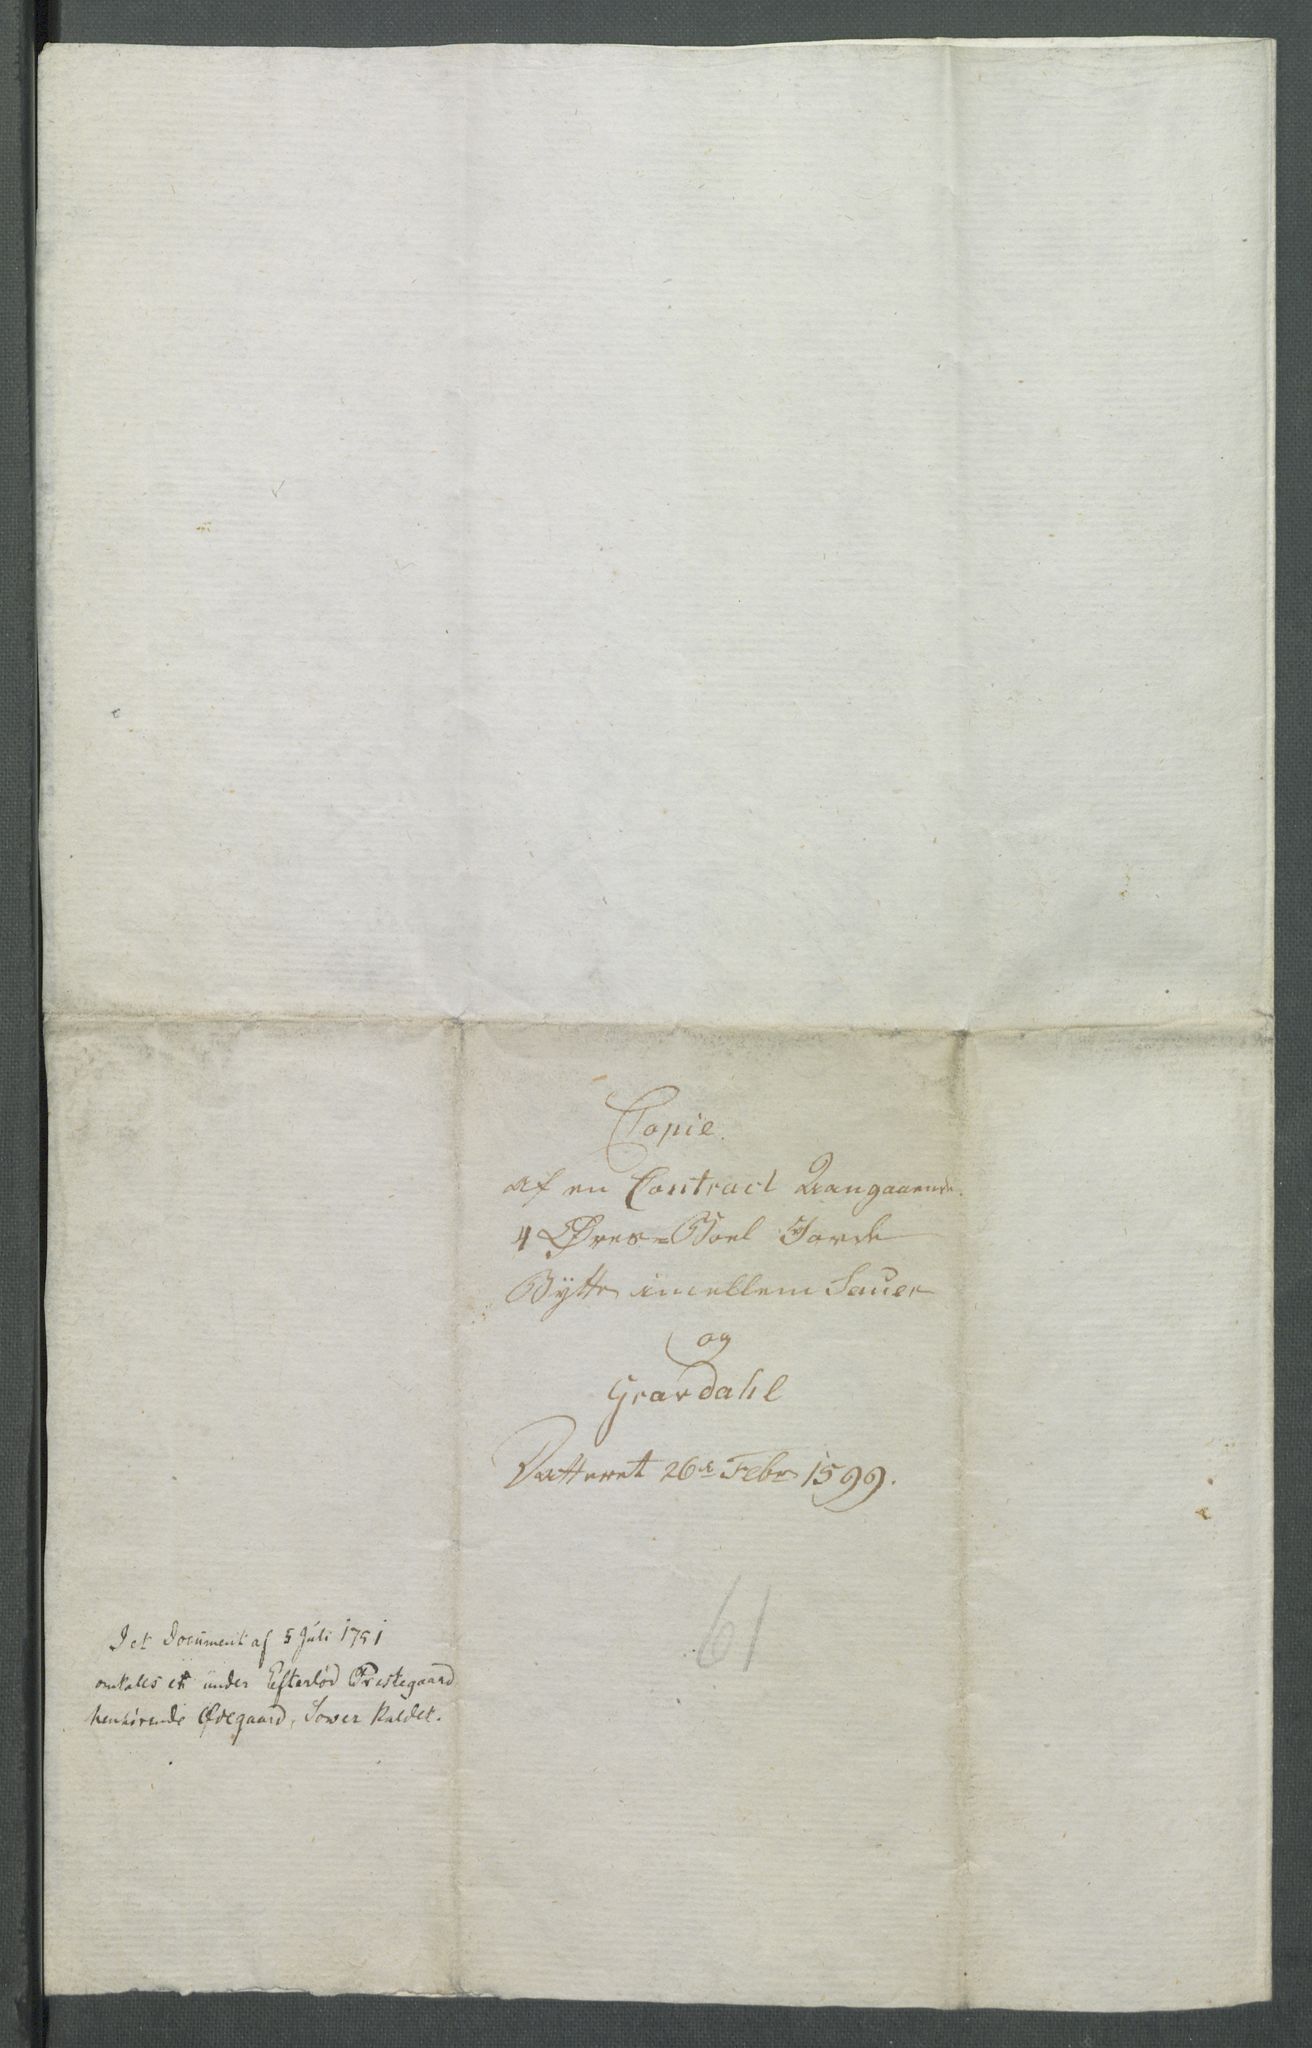 Copie
af en Contract Aangaaende
4 Øres-Boel Jorde
Bÿtte imellem Sauer
og
Gravdahl
Datteret 26de Febr 1599.
61
I et Document af 5 Juli 1751
omtales et under Efterløv Prestegaard
henhørende Ødegaard, Sower kaldet.